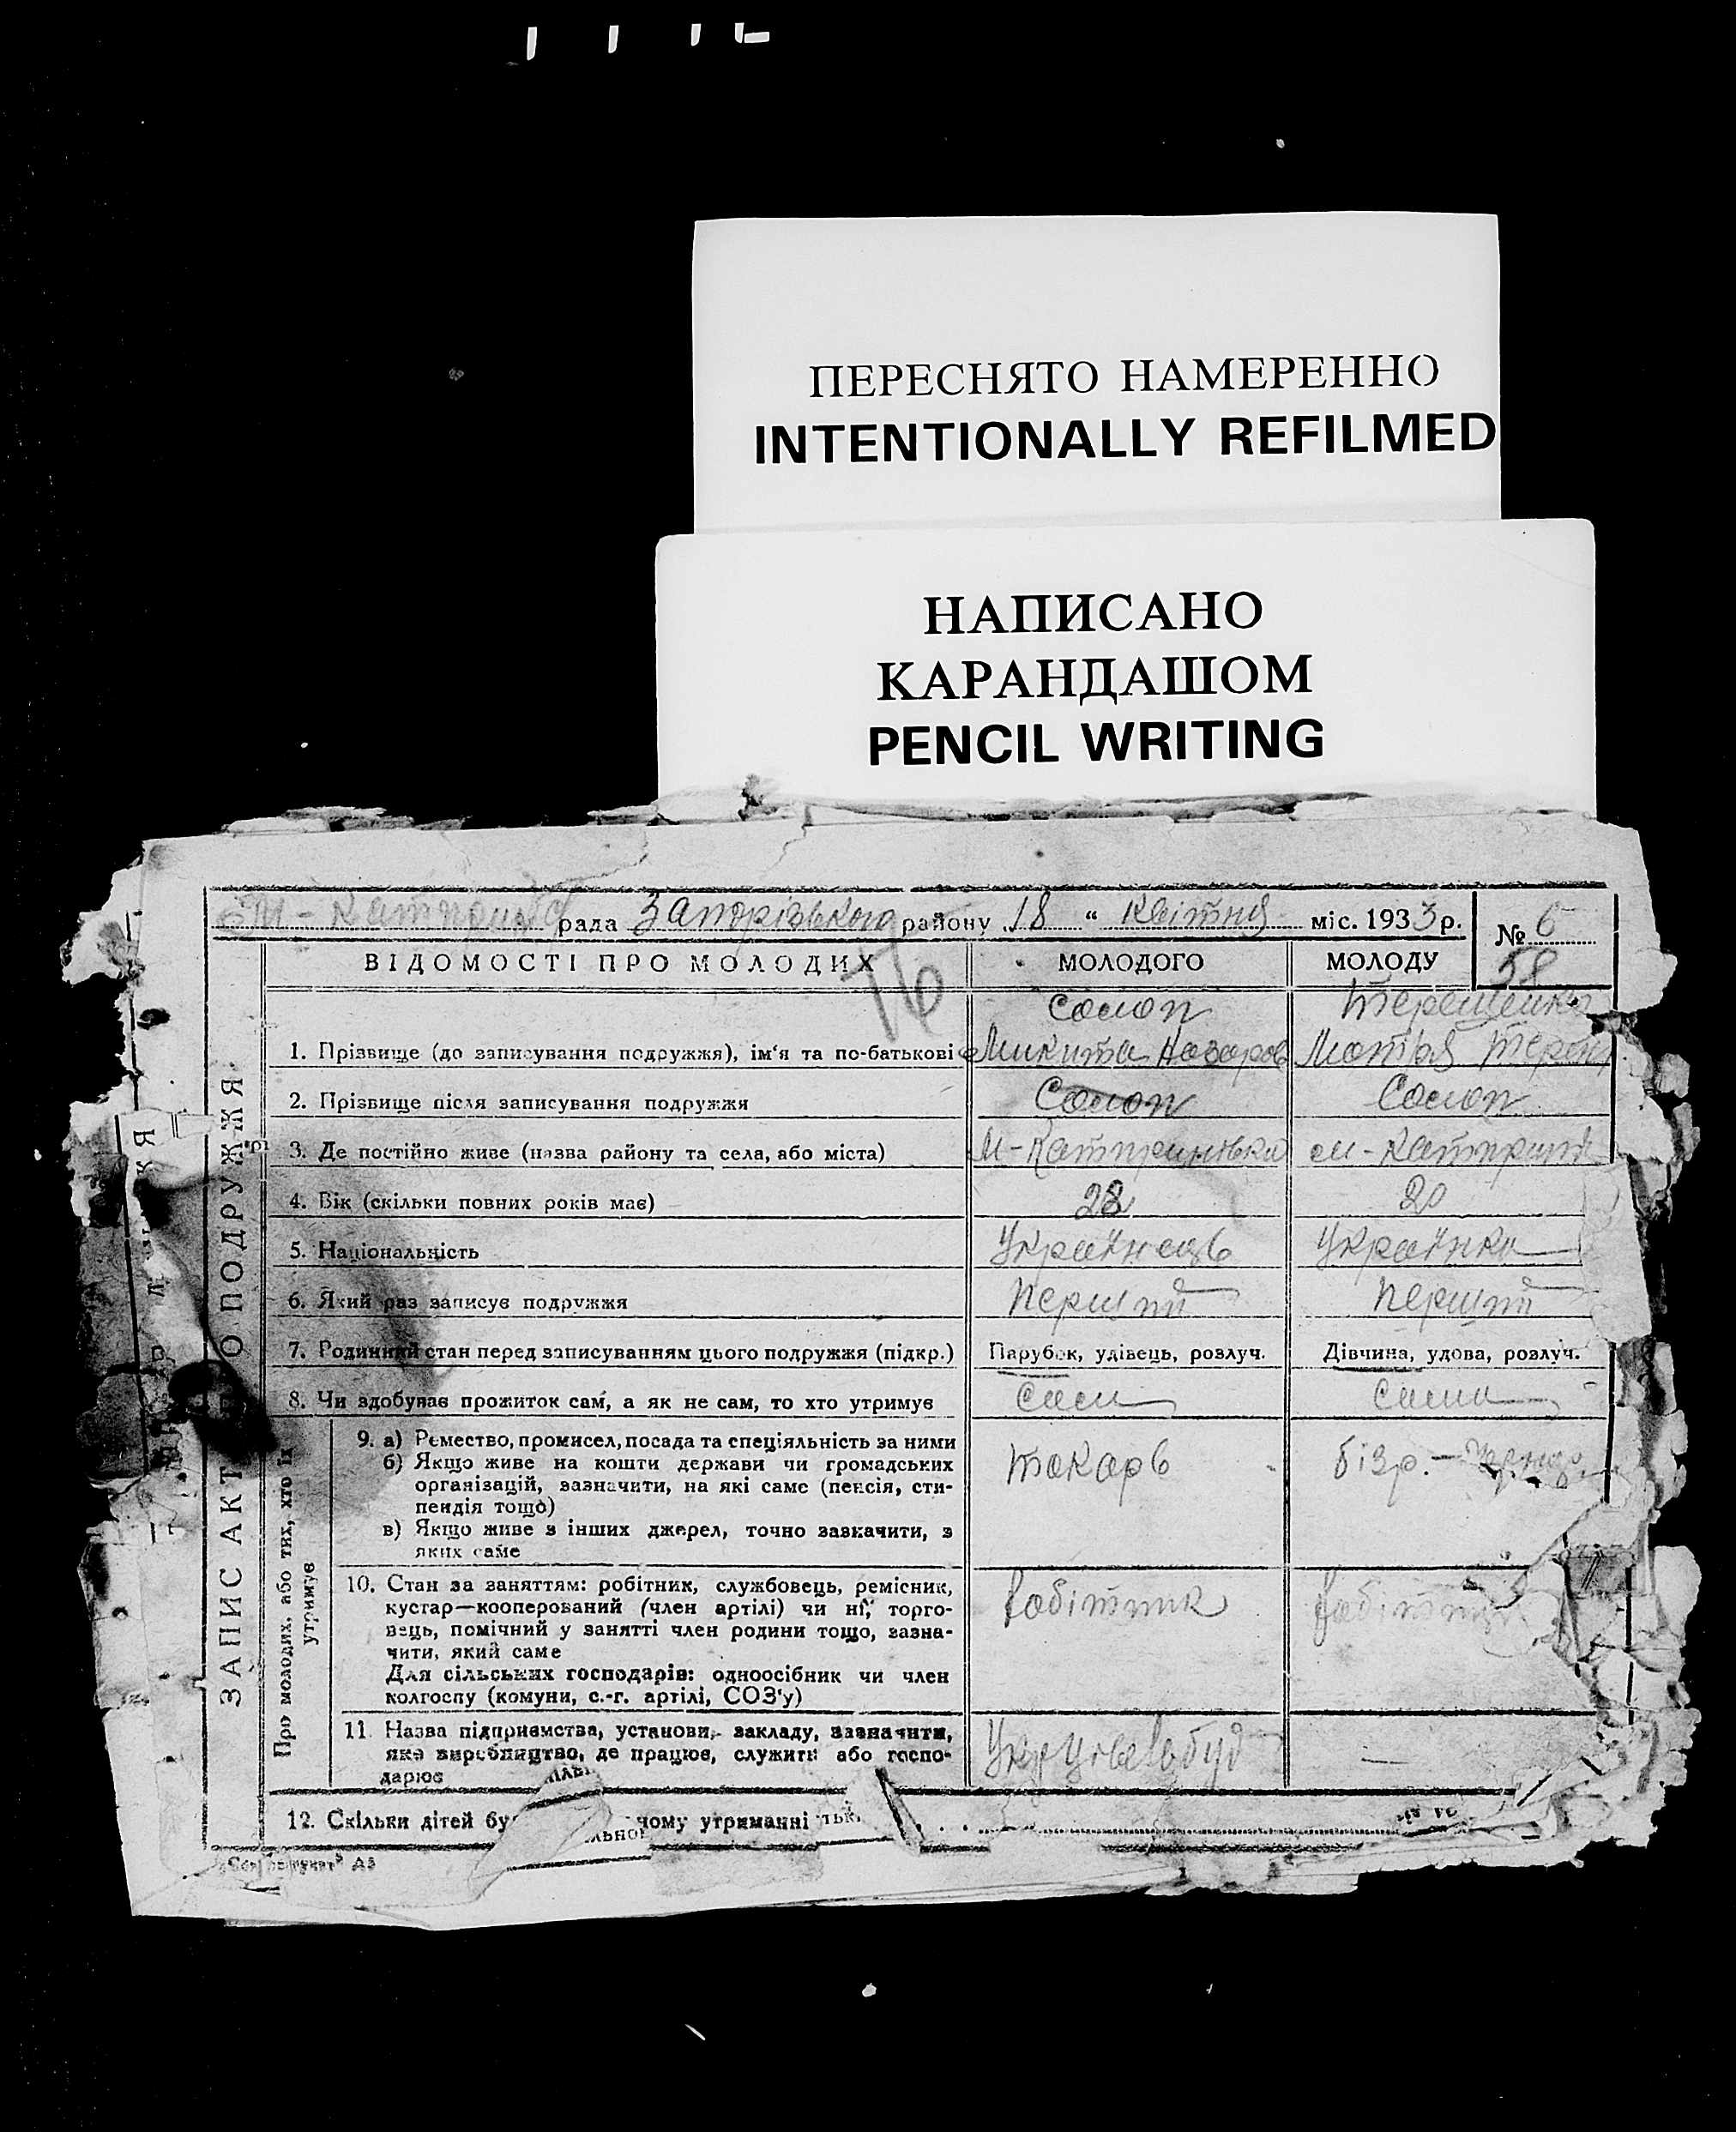 ПЕРЕСНЯТО НАМЕРЕННО
INTENTIONALLY REFILMED
НАПИСАНО
КАРАНДАШОМ
PENCIL WRITING
рада Запорізького району 18 " Квітня міс. 1933 р.
№ 6
58
ВІДОМОСТІ ПРО МОЛОДИХ
МОЛОДОГО
МОЛОДУ
76
ЗАПИС АКТ ПРО ПОДРУЖЖЯ
1. Прізвище (до записування подружжя), ім'я та по-батькові
Микита Назаров
2. Прізвище після записування подружжя
3. Де постійно живе (назва району та села, або міста)
М-Катеринівка
4. Вік (скільки повних років має)
20
5. Національність
Українець
Українка
6. Який раз записує подружжя
Перший
Перший
7. Родинний стан перед записуванням цього подружжя (підкр.)
Парубок, удівець, розлуч.
Дівчина, удова, розлуч.
8. Чи здобував прожиток сам, а як не сам, то хто утримує
сам
сама
Про молодих, або тих, хто їх
утримує
9. а) Ремество, промисел, посада та спеціяльність за ними
б) Якщо живе на кошти держави чи громадських
організацій, зазначити, на які саме (пенсія, сти-
пендія тощо)
в) Якщо живе з інших джерел, точно зазначити, з
яких саме
токарь
10. Стан за заняттям: робітник, службовець, ремісник,
кустар—кооперований (член артілі) чи ні, торго-
вець, помічний у занятті член родини тощо, зазна-
чити, який саме
Для сільських господарів: одноосібник чи член
колгоспу (комуни, с.-г. артілі, СОЗ'у)
робітник
11. Назва підприємства, установи, закладу, зазначити,
яке виробництво, де працює, служить або госпо-
дарює
—
12. Скільки дітей бу
чому утриманні